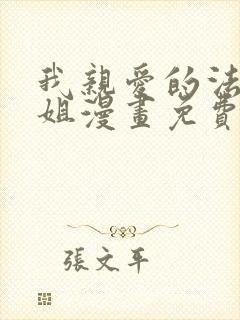 我親愛的法
姐漫畫免費
張文平